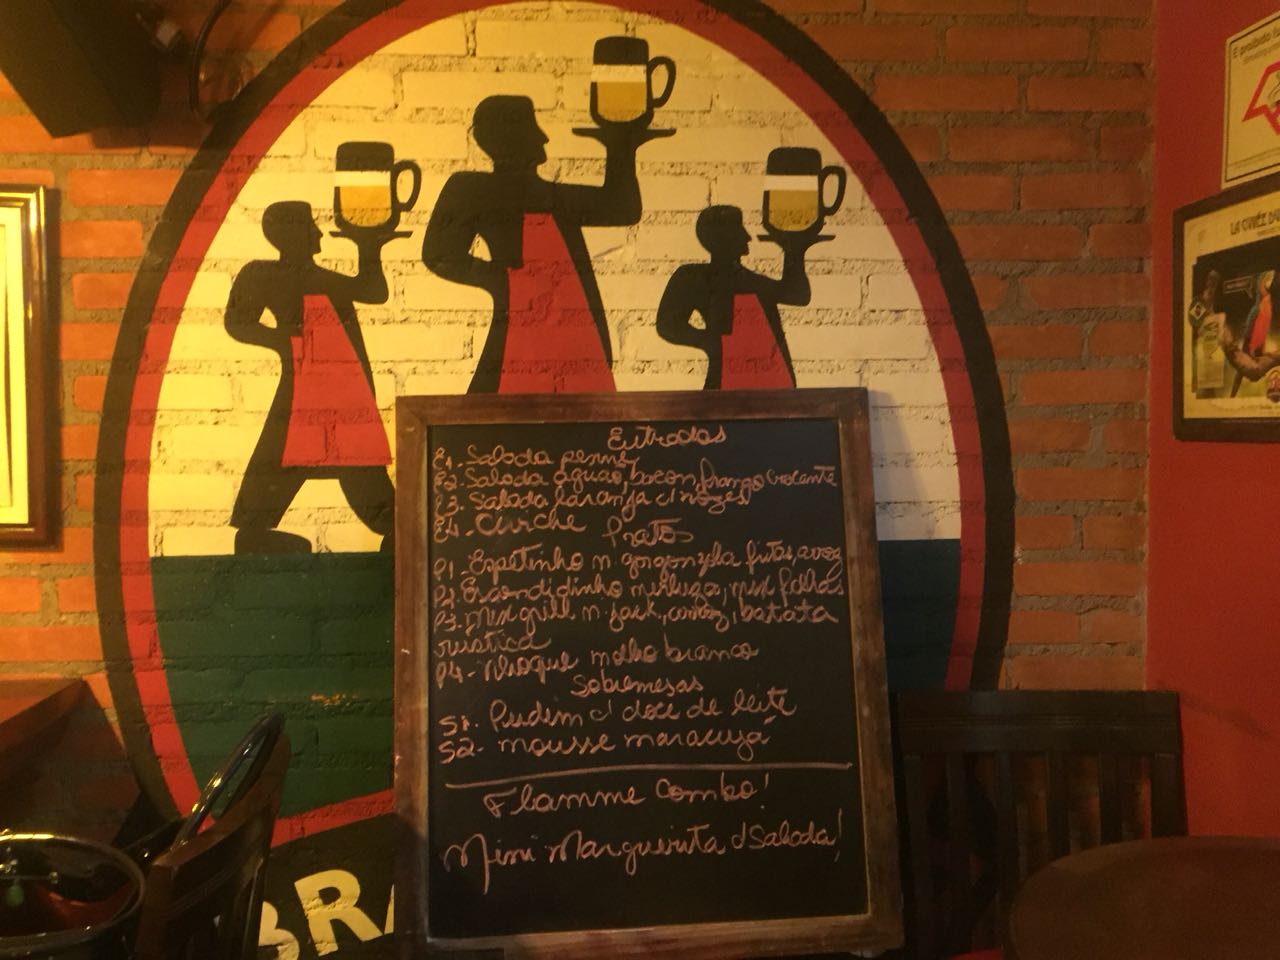 Entradas
E1. Salada penne
E2. Salada agriao, bacon, frango crocante
E3. Salada laranja c/ nozes
E4. Ceviche
Pratos
P1. Espetinho n' gorgonzola fritas, arroz
P2. Escondidinho merluza, mix folhas
P3. Mix grill n' jack, arroz, batata
rústica
P4. Nhoque molho branco
Sobremesas
S1. Pudim c/ doce de leite
S2. mousse maracujá
Flamme combo!
Mini Marguerita c/ Salada!
BRA
É proibido
LA CUVÉE D